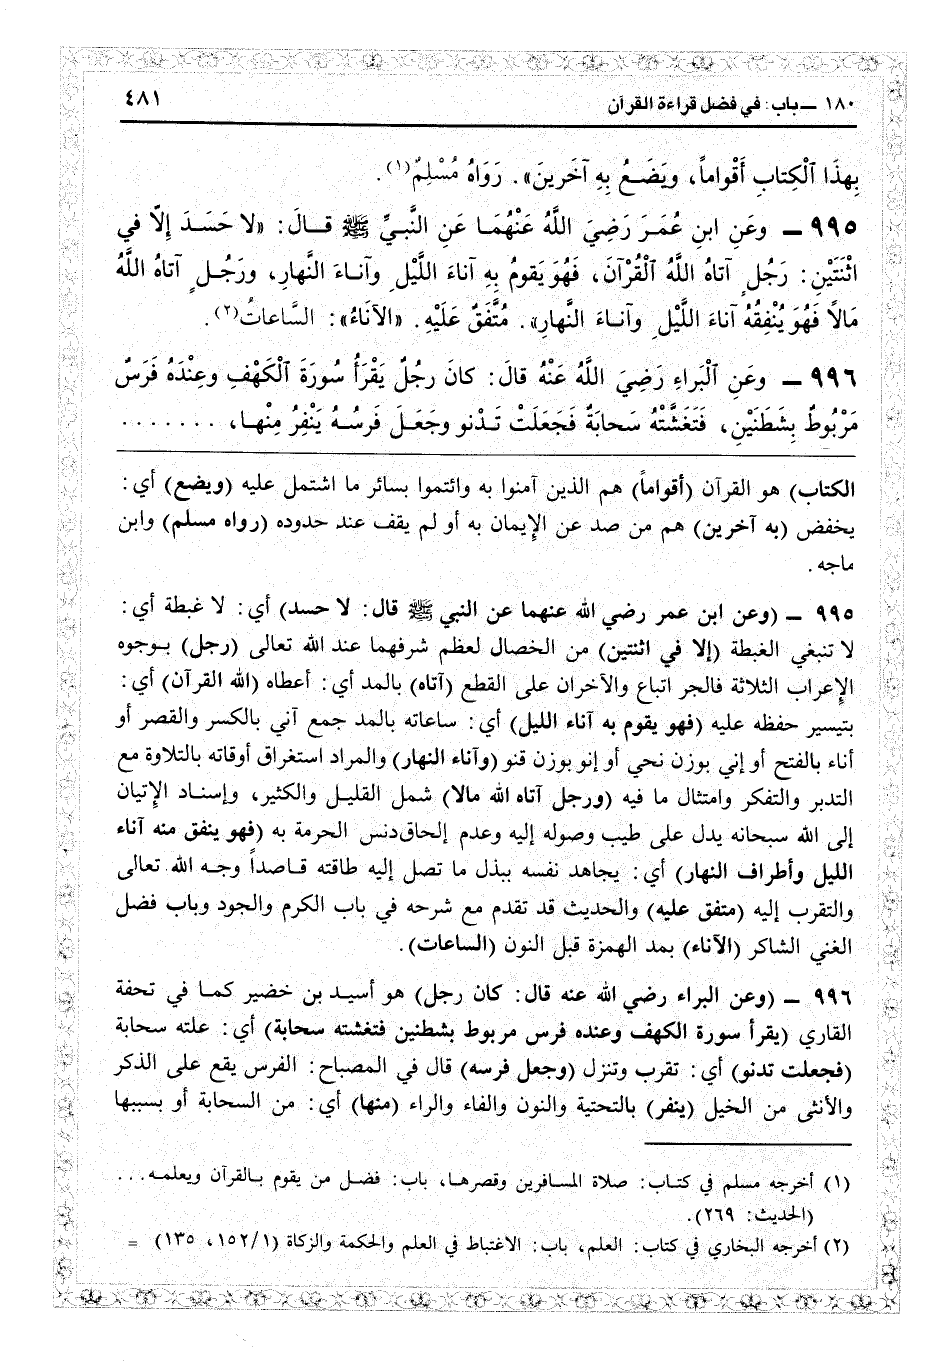 ١٨٠ ـ باب: في فضل قراءة القرآن
٤٨١
بِهذَا ٱلْكِتابِ أَقْواماً، ويَضَعُ بِهِ آخَرِينَ». رَوَاهُ مُسْلِمٌ(١).
٩٩٥ ـ وعَنِ ابنِ عُمَرَ رَضِيَ اللَّهُ عَنْهُمَا عَنِ النَّبِيِّ ﷺ قالَ: «لا حَسَدَ إِلاَّ في
اثْنَتَيْنِ: رَجُلٍ آتاهُ اللَّهُ ٱلْقُرْآنَ، فَهُوَ يَقومُ بِهِ آناءَ اللَّيْلِ وآناءَ النَّهارِ، ورَجُلٍ آتاهُ اللَّهُ
مَالاً فَهُوَ يُنْفِقُهُ آناءَ اللَّيْلِ وآناءَ النَّهارِ». مُتَّفَقٌ عَلَيْهِ. «الآنَاءُ»: السَّاعاتُ(٢).
٩٩٦ ـ وعَنِ ٱلْبَراءِ رَضِيَ اللَّهُ عَنْهُ قالَ: كانَ رجُلٌ يَقْرَأُ سُورَةَ ٱلْكَهْفِ وعِنْدَهُ فَرَسٌ
مَرْبُوطٌ بِشَطَنَيْنِ، فَتَغَشَّتْهُ سَحابَةٌ فَجَعَلَتْ تَدْنو وجَعَلَ فَرسُهُ يَنْفِرُ مِنْها، .......
الكتاب) هو القرآن (أقواماً) هم الذين آمنوا به وائتموا بسائر ما اشتمل عليه (ويضع) أي:
يخفض (به آخرين) هم من صد عن الإِيمان به أو لم يقف عند حدوده (رواه مسلم) وابن
ماجه.
٩٩٥ ـ (وعن ابن عمر رضي الله عنهما عن النبي ﷺ قال: لا حسد) أي: لا غبطة أي:
لا تنبغي الغبطة (إلا في اثنتين) من الخصال لعظم شرفهما عند الله تعالى (رجل) بوجوه
الإِعراب الثلاثة فالجر اتباع والآخران على القطع (آتاه) بالمد أي: أعطاه (الله القرآن) أي:
بتيسير حفظه عليه (فهو يقوم به آناء الليل) أي: ساعاته بالمد جمع آني بالكسر والقصر أو
أناء بالفتح أو إني بوزن نحي أو إنو بوزن قنو (وآناء النهار) والمراد استغراق أوقاته بالتلاوة مع
التدبر والتفكر وامتثال ما فيه (ورجل آتاه الله مالا) شمل القليل والكثير، وإسناد الإِتيان
إلى الله سبحانه يدل على طيب وصوله إليه وعدم إلحاق دنس الحرمة به (فهو ينفق منه آناء
الليل وأطراف النهار) أي: يجاهد نفسه ببذل ما تصل إليه طاقته قاصداً وجه الله تعالى
والتقرب إليه (متفق عليه) والحديث قد تقدم مع شرحه في باب الكرم والجود وباب فضل
الغني الشاكر (الآناء) بمد الهمزة قبل النون (الساعات).
٩٩٦ ـ (وعن البراء رضي الله عنه قال: كان رجل) هو أسيد بن خضير كما في تحفة
القاري (يقرأ سورة الكهف وعنده فرس مربوط بشطنين فتغشته سحابة) أي: علته سحابة
(فجعلت تدنو) أي: تقرب وتنزل (وجعل فرسه) قال في المصباح: الفرس يقع على الذكر
والأنثى من الخيل (ينفر) بالتحتية والنون والفاء والراء (منها) أي: من السحابة أو بسببها
(١) أخرجه مسلم في كتاب: صلاة المسافرين وقصرها، باب: فضل من يقوم بالقرآن ويعلمه...
(الحديث: ٢٦٩).
(٢) أخرجه البخاري في كتاب: العلم، باب: الاغتباط في العلم والحكمة والزكاة (١/ ١٥٢، ١٣٥) =